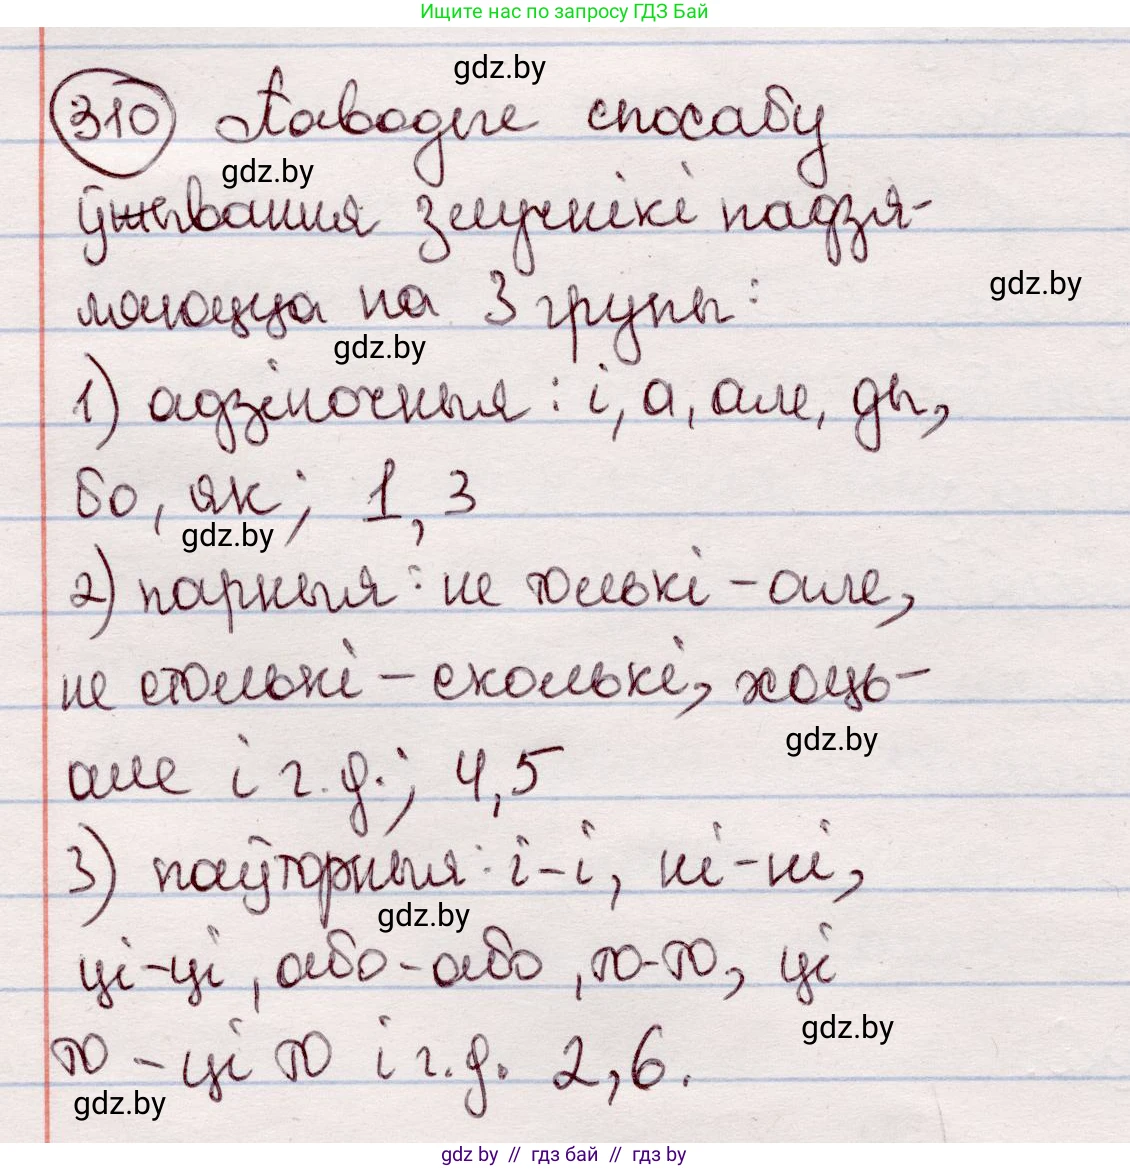 Ищите нас по запросу ГДЗ Бай
gdz.by
310 Паводле спосабу
gdz.by
ўжывання злучнікі падзя-
gdz.by
ляюцца на 3 групы:
gdz.by
1) адзіночныя: і, а, але, ды,
бо, як; 1, 3
gdz.by
2) парныя: не толькі – але,
не столькі – сколькі, хоць–
gdz.by
але і г.д.; 4,5
3) паўторныя: і-і, ні-ні,
gdz.by
ці-ці, або-або, то-то, ці
gdz.by
то – ці то і г.д. 2,6.
gdz.by
gdz by // гдз бай // гдз by